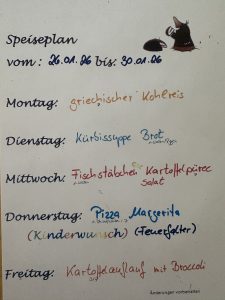 Speiseplan
vom: 26.01.26 bis: 30.01.26
Montag: griechischer Kohlreis
Dienstag: Kürbissuppe Brot
Mittwoch: Fischstäbchen Kartoffelpüree
Salat
Donnerstag: Pizza Margerita
(Kinderwunsch) (Feuerfalter)
Freitag: Kartoffelauflauf mit Broccoli
Änderungen vorbehalten